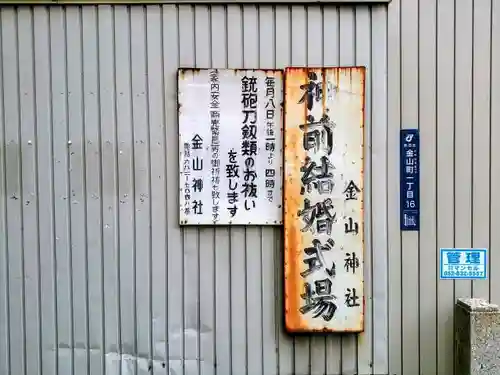 神前結婚式場
金山神社
毎月八日午後一時より四時まで
銃砲刀剱類のお祓い
を致します
家内安全
の御祈祷も致します
金山神社
金山町一丁目
16
管理
052-832-5557